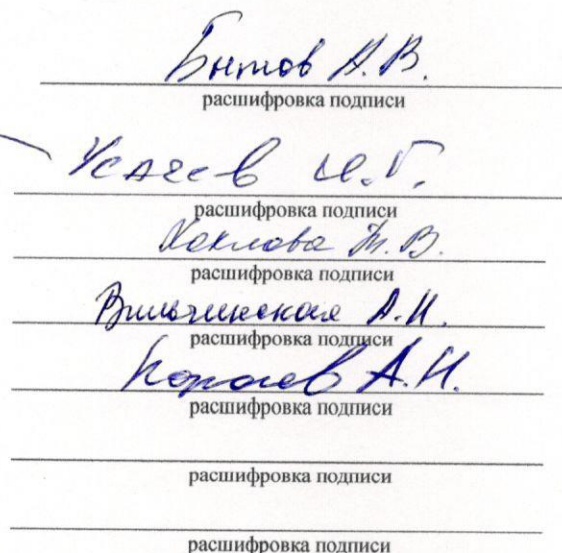 Бытов А.В.
расшифровка подписи
Усачев И.Г.
расшифровка подписи
Хохлова Т.В.
расшифровка подписи
Вильчинская А.И.
расшифровка подписи
А.И.
расшифровка подписи
расшифровка подписи
расшифровка подписи